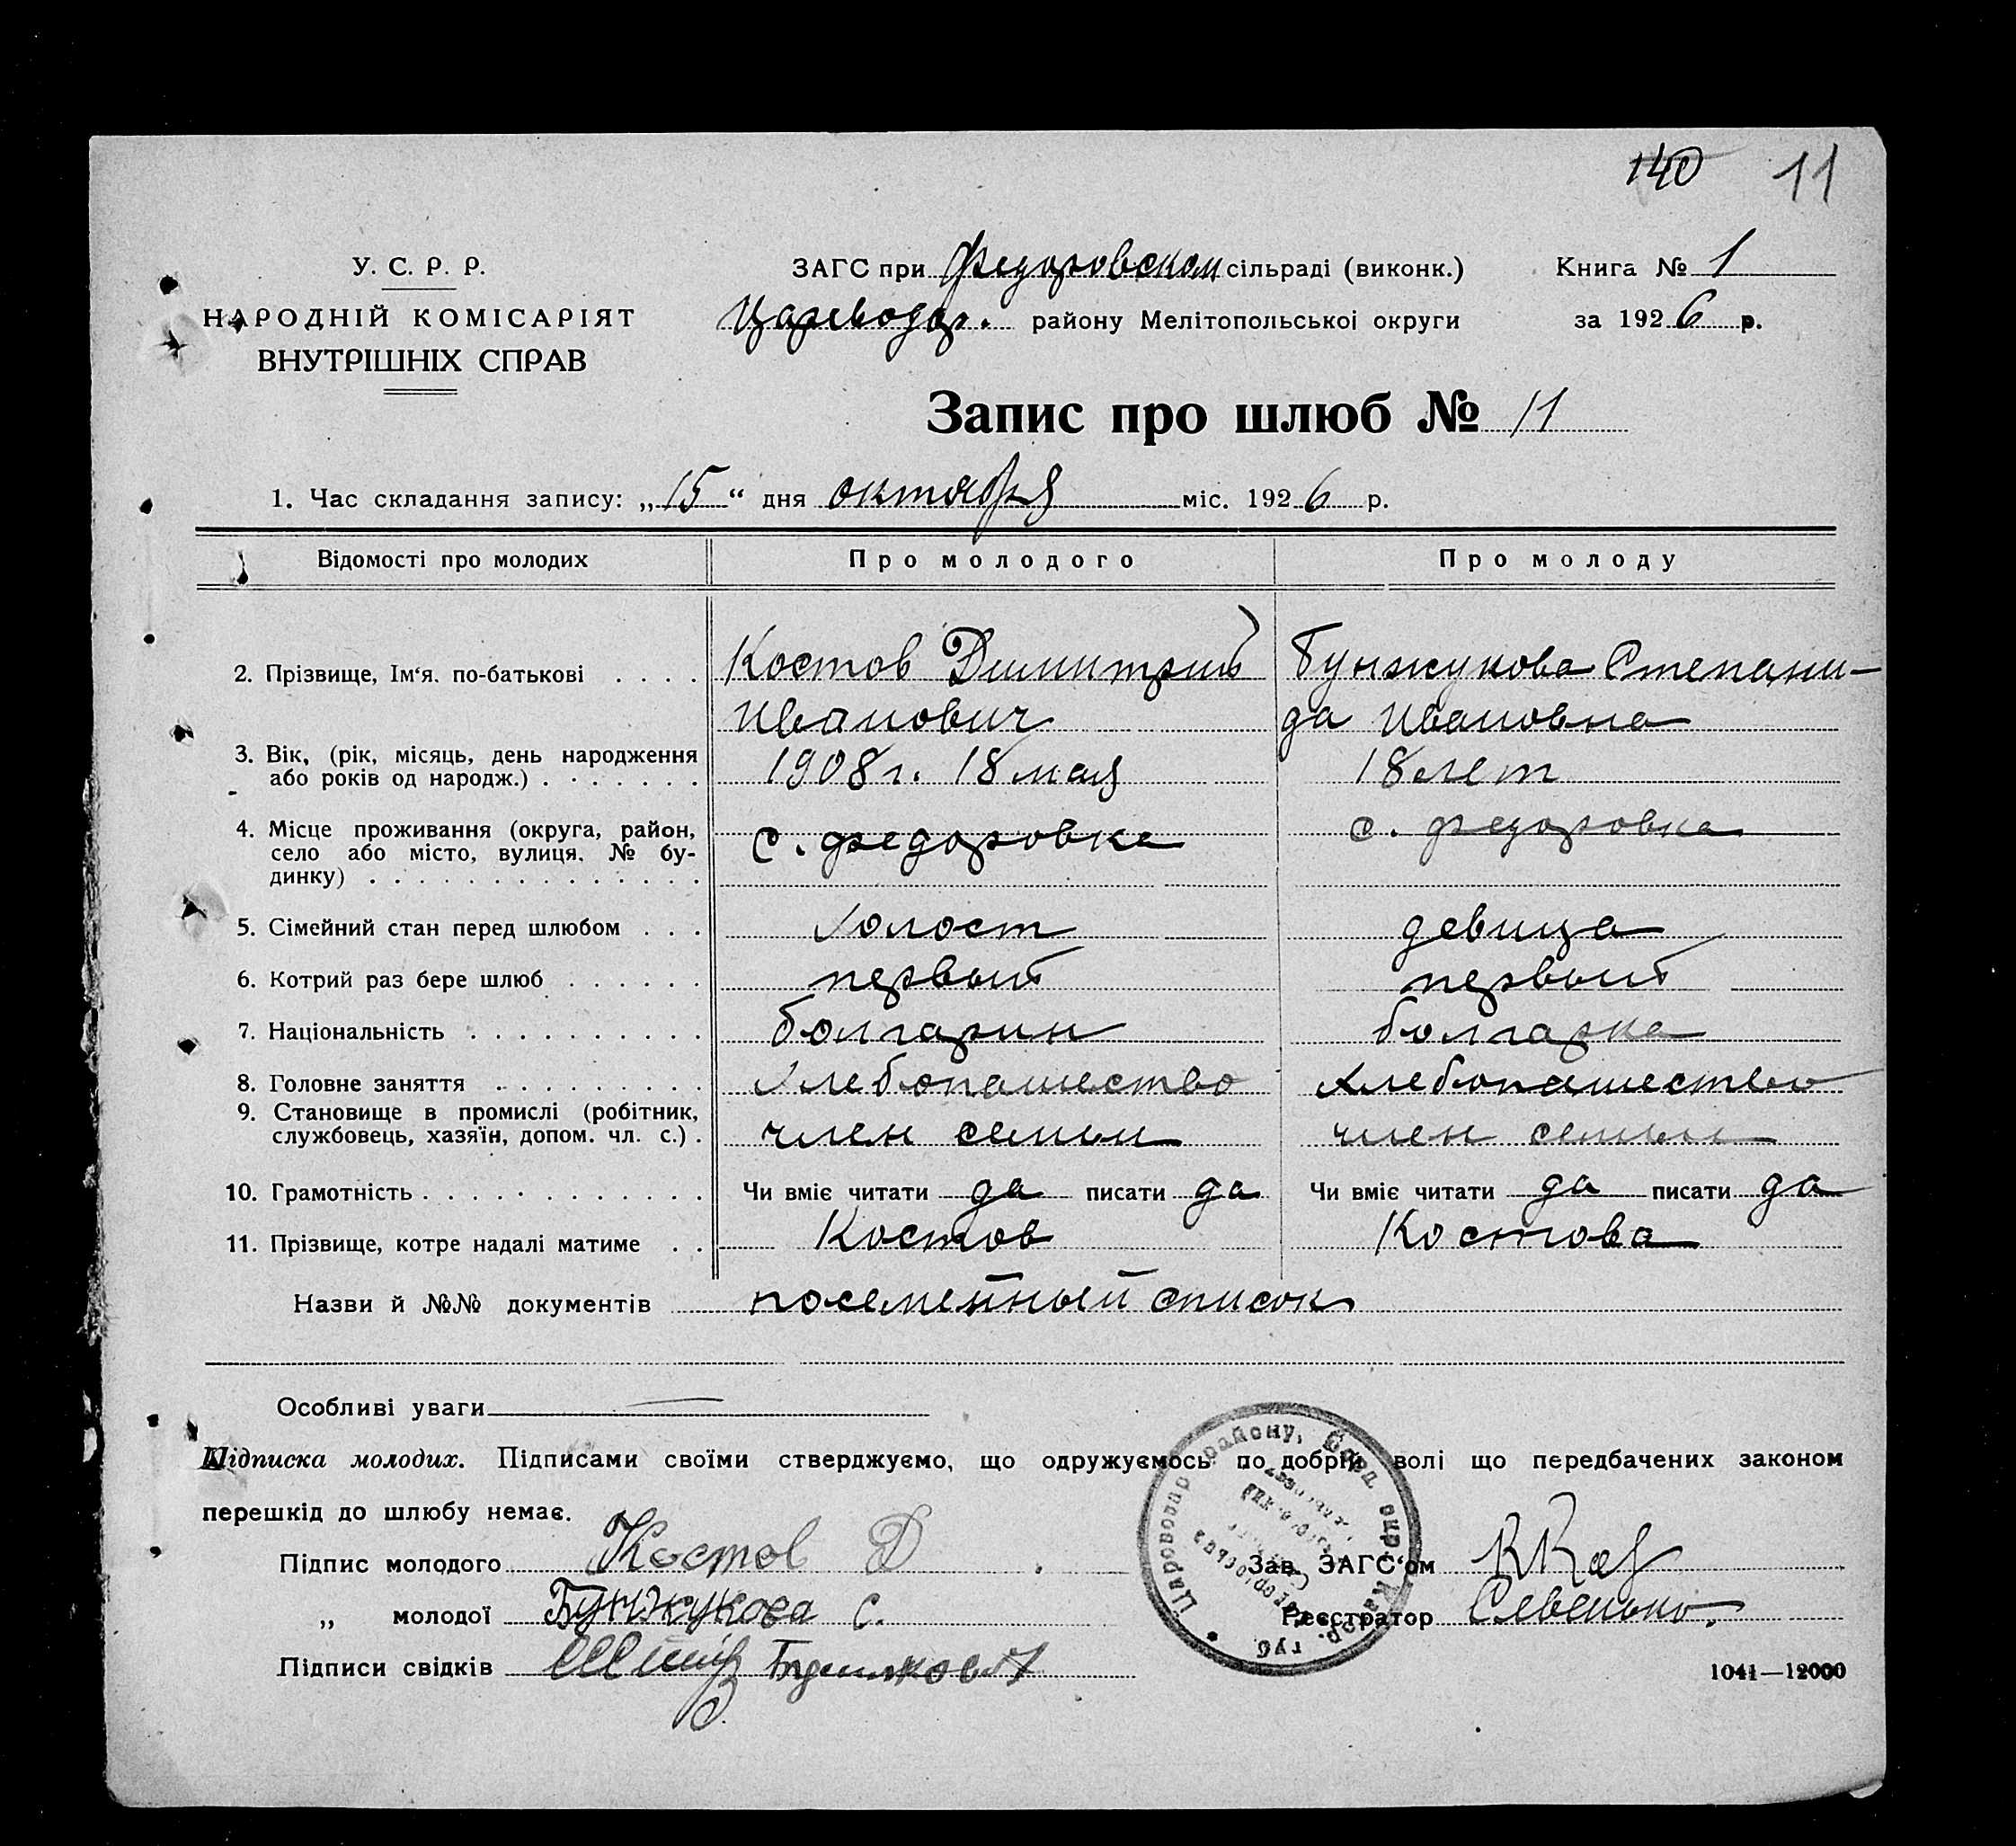 140 11
У. С. Р. Р.
НАРОДНІЙ КОМІСАРІЯТ
ВНУТРІШНІХ СПРАВ
ЗАГС при Федоровском сільраді (виконк.)
Цареводар. району Мелітопольської округи
Книга № 1
за 1926 р.
Запис про шлюб № 11
1. Час складання запису: „15“ дня октября міс. 1926 р.
Відомості про молодих Про молодого Про молоду
2. Прізвище, Ім‘я. по-батькові . . . . Костов Димитрий Бунжукова Степани-
Иванович да Ивановна
3. Вік, (рік, місяць, день народження
або років од народж.) . . . . . . . 1908 г. 18 мая 18 лет
4. Місце проживання (округа, район,
село або місто, вулиця. № бу-
динку) . . . . . . . . . . . . . . с. Федоровка с. Федоровка
5. Сімейний стан перед шлюбом . . . Холост девица
6. Котрий раз бере шлюб . . . . . . первый первый
7. Національність . . . . . . . . . . болгарин болгарка
8. Головне заняття . . . . . . . . . Хлебопашество хлебопашество
9. Становище в промислі (робітник,
службовець, хазяїн, допом. чл. с.) . член семьи член семьи
10. Грамотність . . . . . . . . . . . . Чи вміє читати да писати да Чи вміє читати да писати да
11. Прізвище, котре надалі матиме . . Костов Костова
Назви й №№ документів посемейный список
Особливі уваги —
Підписка молодих. Підписами своїми стверджуємо, що одружуємось по добрій волі що передбачених законом
перешкід до шлюбу немає.
Підпис молодого Костов Д
„ молодої Бунжукова С.
Підписи свідків
Зав. ЗАГС‘ом
Реєстратор
району, Берд окр. Катер. губ
1041—12000